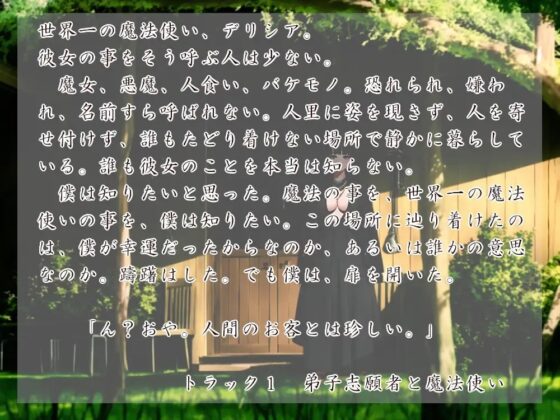 世界一の魔法使い、デリシア。
彼女の事をそう呼ぶ人は少ない。
　魔女、悪魔、人食い、バケモノ。恐れられ、嫌わ
れ、名前すら呼ばれない。人里に姿を現さず、人を寄
せ付けず、誰もたどり着けない場所で静かに暮らして
いる。誰も彼女のことを本当は知らない。
　僕は知りたいと思った。魔法の事を、世界一の魔法
使いの事を、僕は知りたい。この場所に辿り着けたの
は、僕が幸運だったからなのか、あるいは誰かの意思
なのか。躊躇はした。でも僕は、扉を開いた。
「ん？おや。人間のお客とは珍しい。」
トラック１　弟子志願者と魔法使い